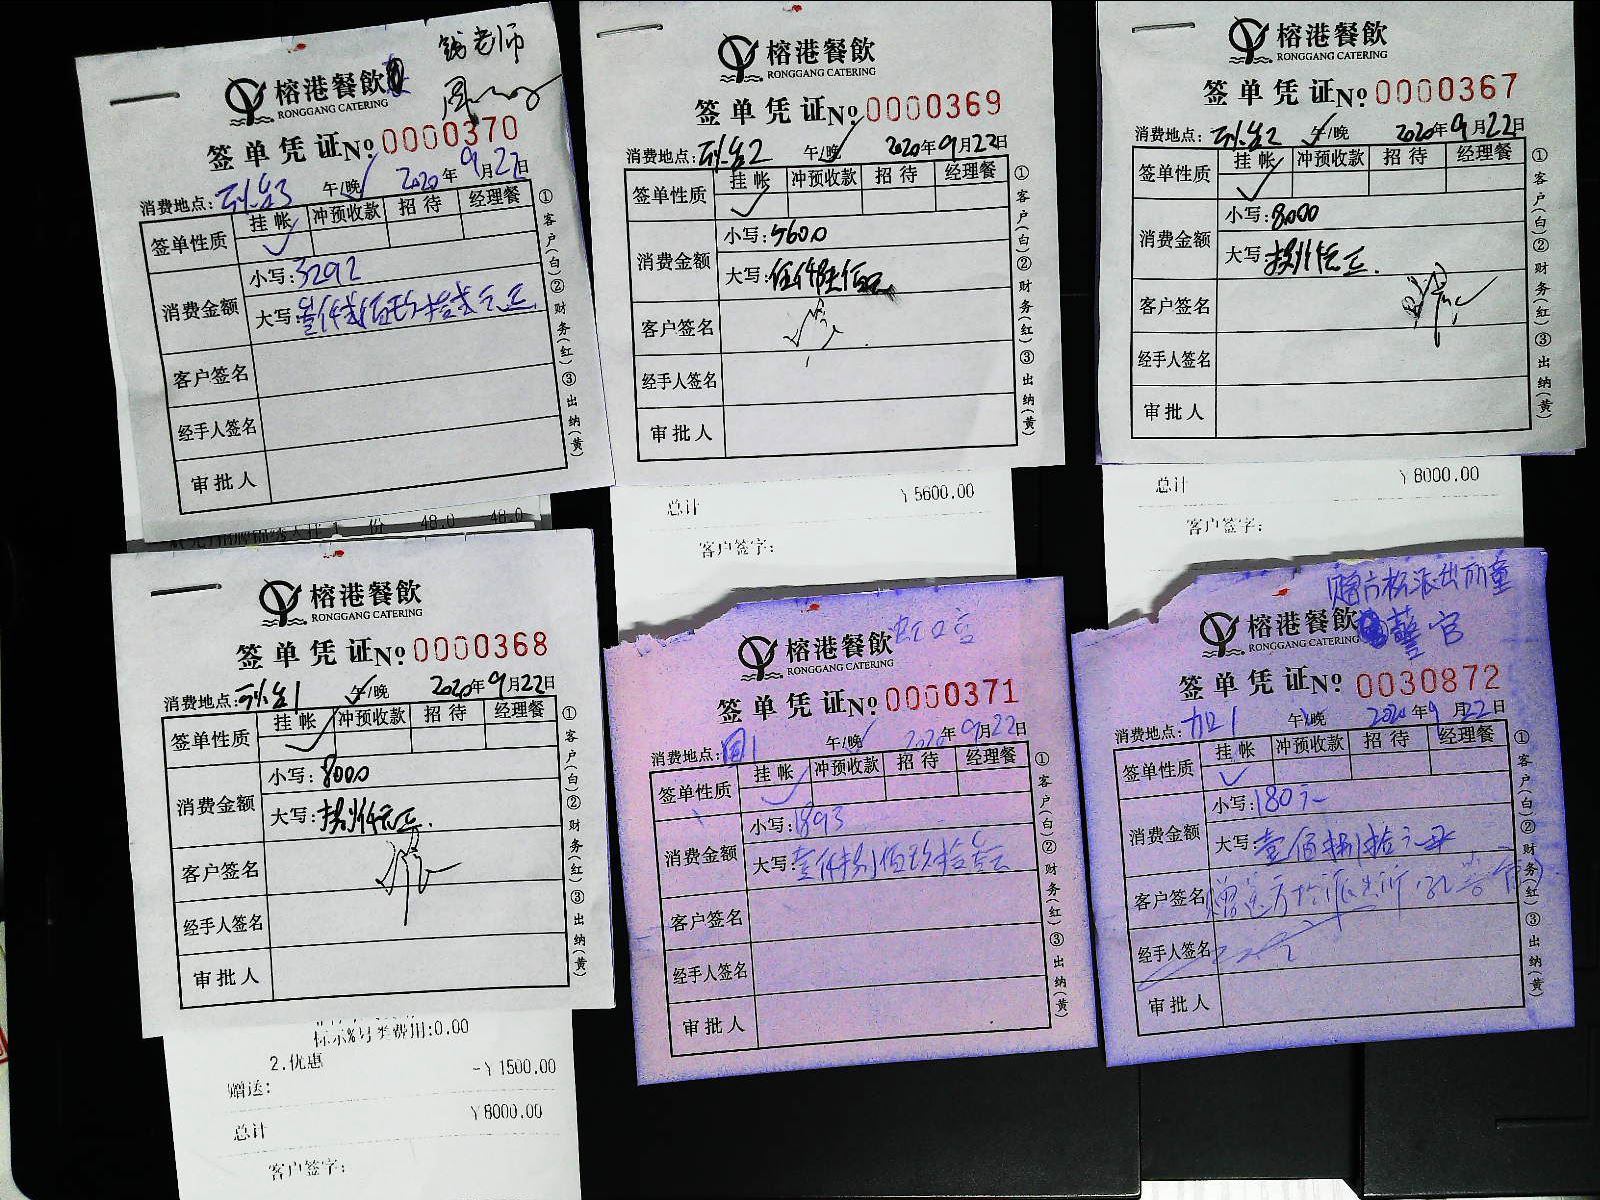 老师
榕港餐飲
RONGGANG CATERING
签单凭证 No 0000370
消费地点: 3 午/晚 2020年9月22日
签单性质 挂帐 冲预收款 招待 经理餐
消费金额 小写:3292
大写:叁仟贰佰玖拾贰元正
客户签名
经手人签名
审批人
①客户(白)②财务(红)③出纳(黄)
份 48.0 48.0
榕港餐飲
RONGGANG CATERING
签单凭证 No 0000369
消费地点: 2 午/晚 2020年9月22日
签单性质 挂帐 冲预收款 招待 经理餐
消费金额 小写:5600
大写:伍仟陆佰元
客户签名
经手人签名
审批人
①客户(白)②财务(红)③出纳(黄)
总计 ￥5600.00
客户签字:
榕港餐飲
RONGGANG CATERING
签单凭证 No 0000367
消费地点: 2 午/晚 2020年9月22日
签单性质 挂帐 冲预收款 招待 经理餐
消费金额 小写:8000
大写:捌仟元正.
客户签名
经手人签名
审批人
①客户(白)②财务(红)③出纳(黄)
总计 ￥8000.00
客户签字:
榕港餐飲
RONGGANG CATERING
签单凭证 No 0000368
消费地点: 1 午/晚 2020年9月22日
签单性质 挂帐 冲预收款 招待 经理餐
消费金额 小写:8000
大写:捌仟元正.
客户签名
经手人签名
审批人
①客户(白)②财务(红)③出纳(黄)
费用:0.00
2.优惠 -￥1500.00
赠送:
总计 ￥8000.00
客户签字:
榕港餐飲
RONGGANG CATERING
签单凭证 No 0000371
消费地点: 1 午/晚 2020年9月22日
签单性质 挂帐 冲预收款 招待 经理餐
消费金额 小写:1893
大写:壹仟捌佰玖拾叁元
客户签名
经手人签名
审批人
①客户(白)②财务(红)③出纳(黄)
赠方松派出所童
警官
榕港餐飲
RONGGANG CATERING
签单凭证 No 0030872
消费地点: 加1 午/晚 2020年9月22日
签单性质 挂帐 冲预收款 招待 经理餐
消费金额 小写:180元
大写:壹佰捌拾元正
客户签名 赠送方松派出所
经手人签名
审批人
①客户(白)②财务(红)③出纳(黄)